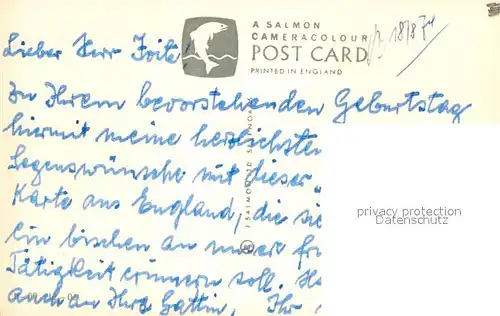 A SALMON
CAMERACOLOUR
POST CARD
PRINTED IN ENGLAND
18/8 74
Lieber Herr
Zu Ihrem bevorstehenden Geburtstag
hiermit meine herzlichsten
Segenswünsche mit dieser
Karte aus England, die sie
ein bischen an unsere
Tätigkeit erinnern soll.
auch an Ihre Gattin, Ihr
privacy protection
Datenschutz